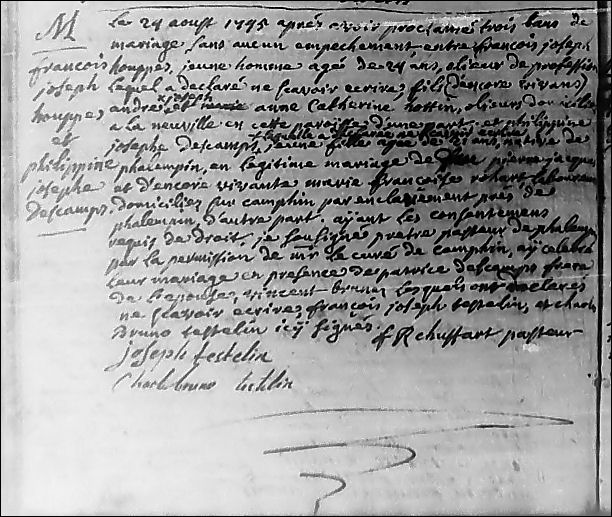 M
françois
joseph
houppes
et
philippine
josephe
descamps.
Le 24 aoust 1745 aprés avoir proclamé trois bans de
mariage, sans aucun empechement, entre françois joseph
houppes, jeune homme agé de 24 ans, olieur de profession
lequel a declaré ne scavoir ecrire, fils (d'encore vivans)
andré joseph et anne Catherine hottin, olieurs domicilies
a la neuville en cette paroisse d'une part, et philippine
laquelle a declarée ne scavoir ecrire
josephe descamps, jeune fille agée de 21 ans, native de
phalempin, en legitime mariage de pierre jacques,
et d'encore vivante marie françoise rohart laboureurs
domicilies sur camphin par enclavement prés de
phalempin, d'autre part. ayant les consentemens
requis de droit, je soussigné pretre pasteur de phalempin
par la permission de mr le curé de camphin, aÿ celebré
leur mariage en presence de patrice descamps frere
de l'epouse, vincent brunel lesquels ont declarés
ne scavoir ecrire, françois joseph testelin, et charle
Bruno testelin icÿ signés.
f R chuffart pasteur
joseph testelin
Charle bruno testelin